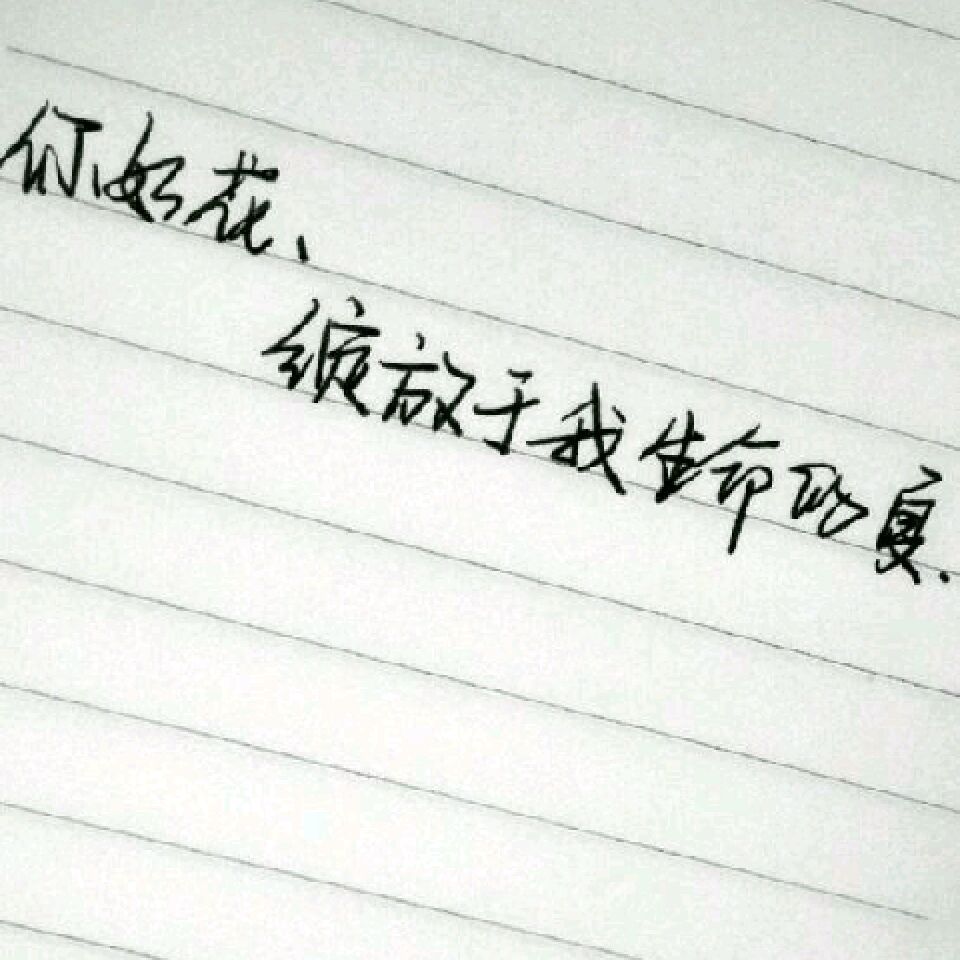 你如花、
绽放于我生命的夏.